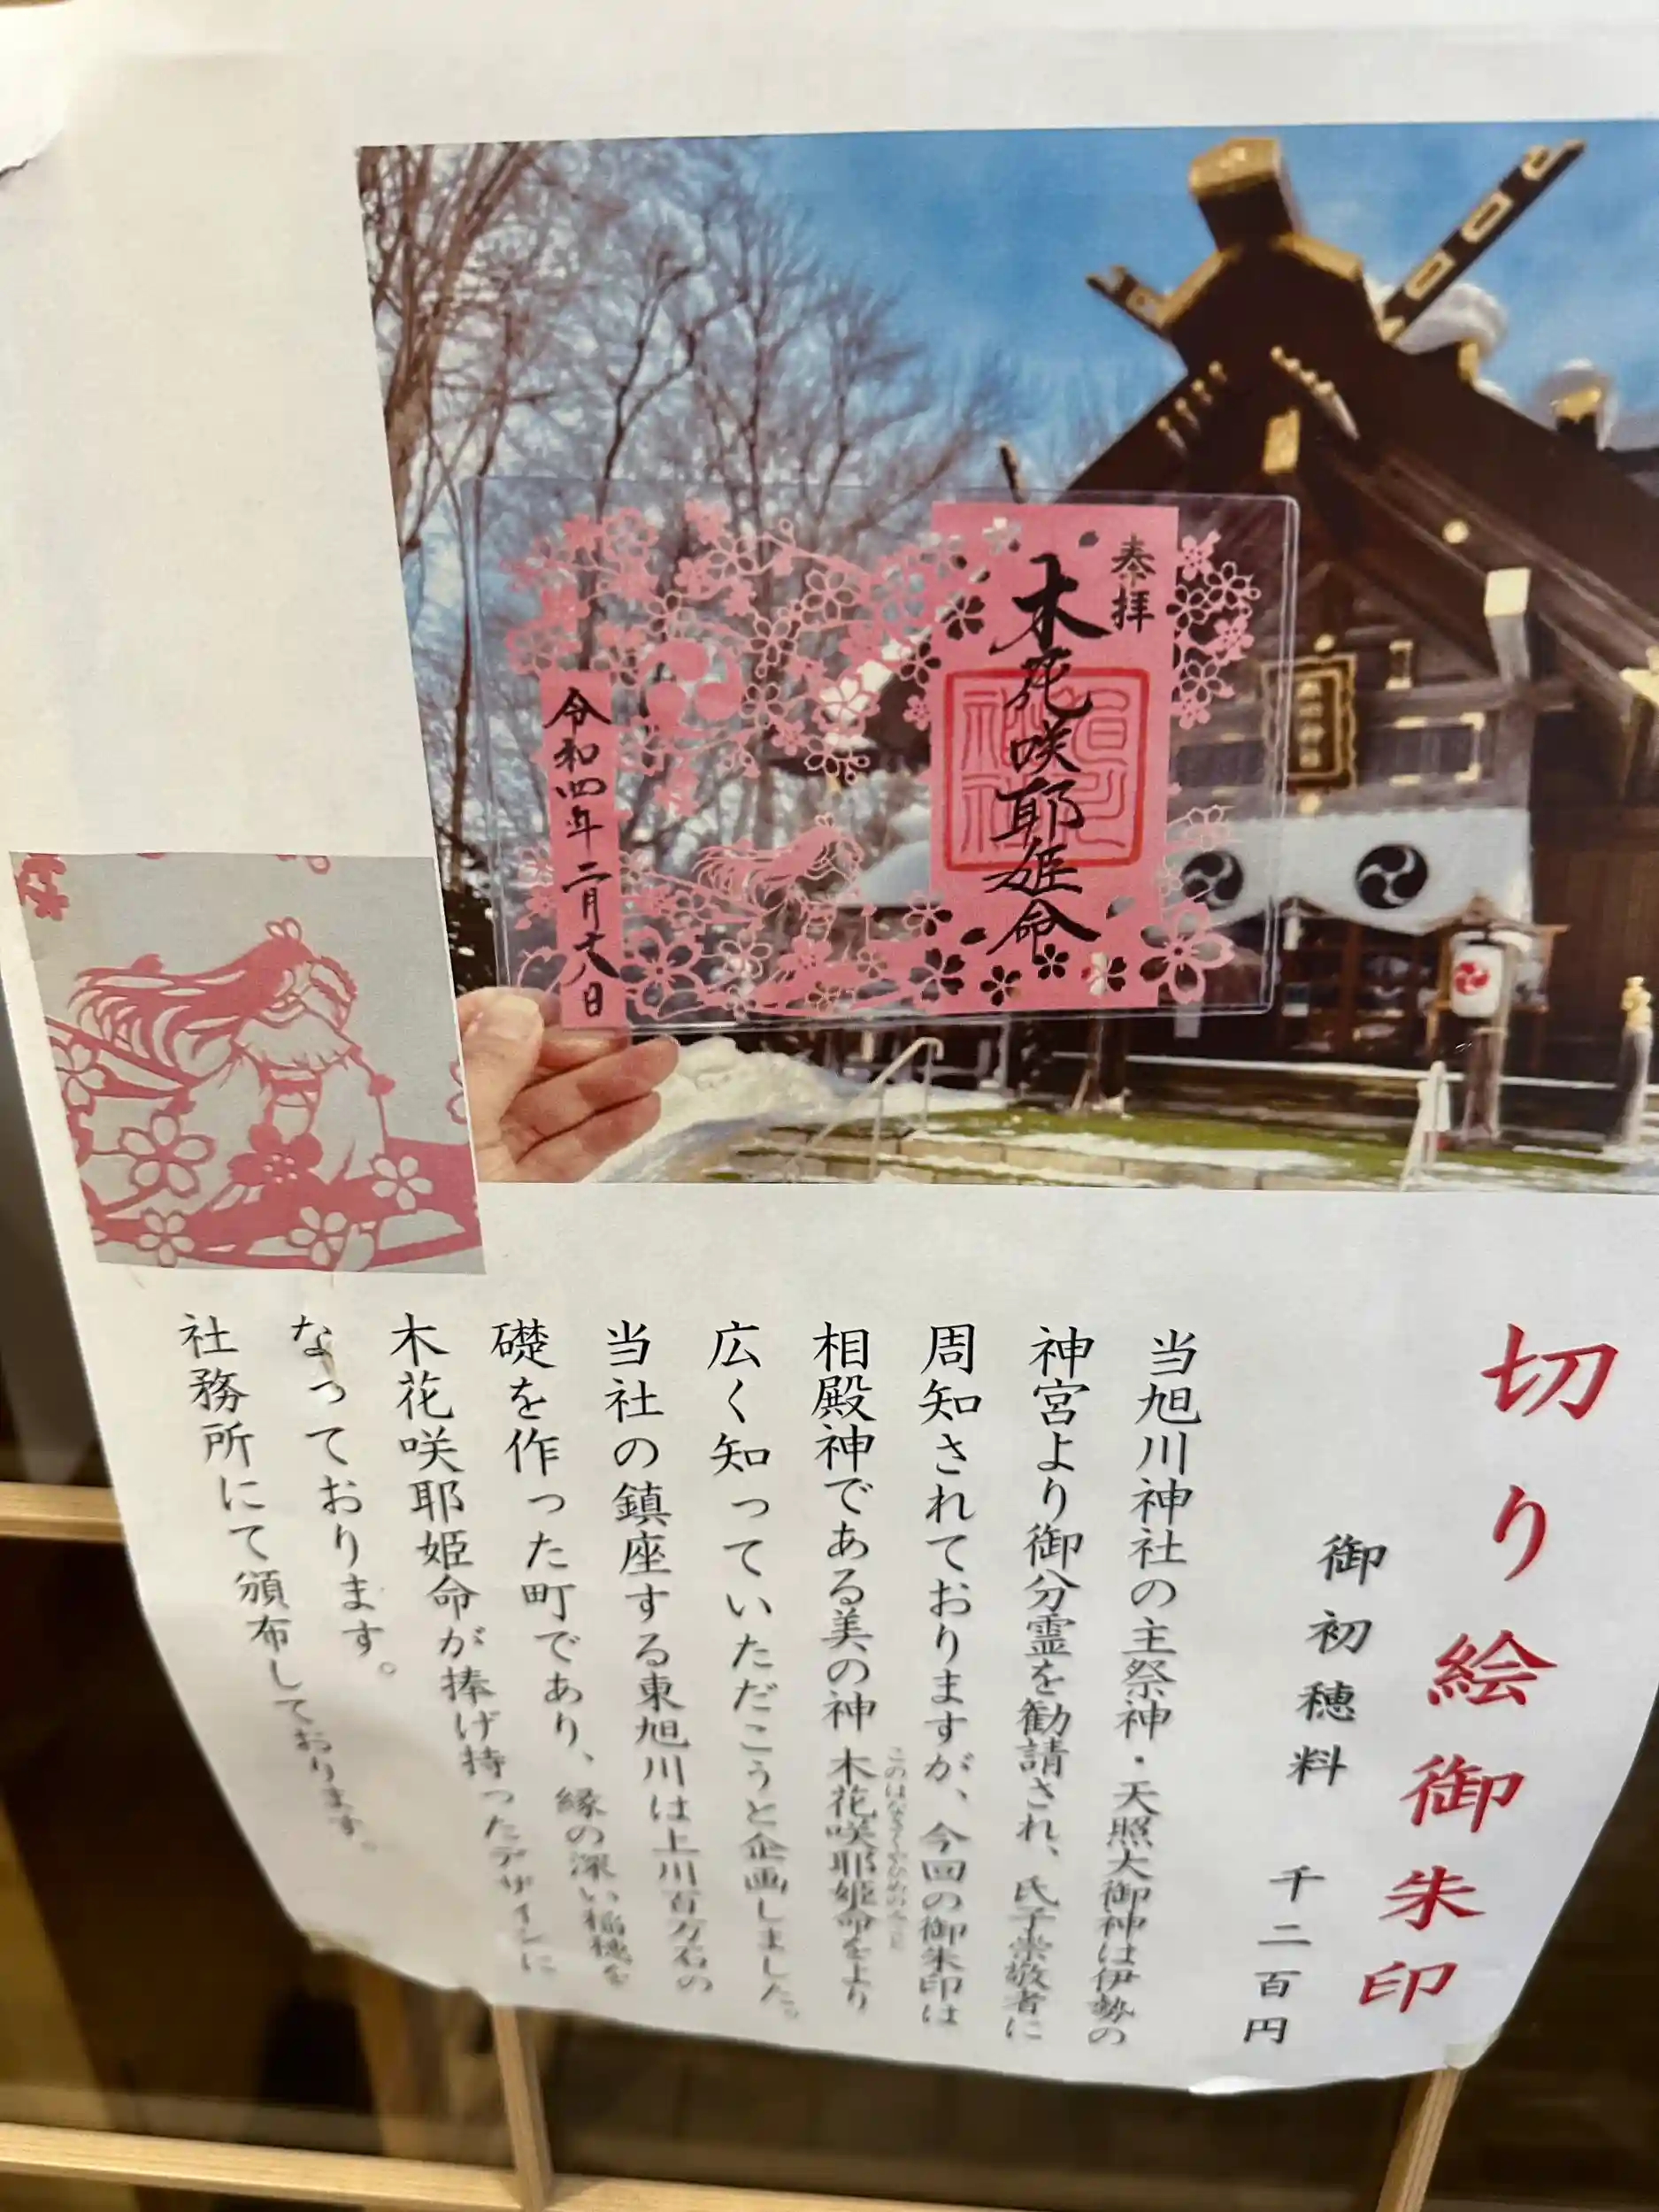 奉拝
木花咲耶姫命
旭川神社
令和四年二月六日
切り絵御朱印
御初穂料 千二百円
当旭川神社の主祭神・天照大御神は伊勢の
神宮より御分霊を勧請され、氏子崇敬者に
周知されておりますが、今回の御朱印は
相殿神である美の神 木花咲耶姫命をより
このはなさくやひめのみこと
広く知っていただこうと企画しました。
当社の鎮座する東旭川は上川百万石の
礎を作った町であり、縁の深い稲穂を
木花咲耶姫命が捧げ持ったデザインに
なっております。
社務所にて頒布しております。